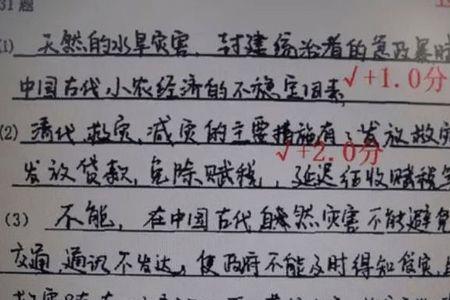 31 题
(1) 天然的水旱灾害, 封建统治者的急政暴
中国古代小农经济的不稳定因素
√+1.0分
(2) 清代救灾、减灾的主要措施有: 发放救
√+2.0分
发放贷款, 免除赋税, 延迟征收赋税
(3) 不能, 在中国古代自然灾害不能避免
交通通讯不发达, 使政府不能及时得知灾